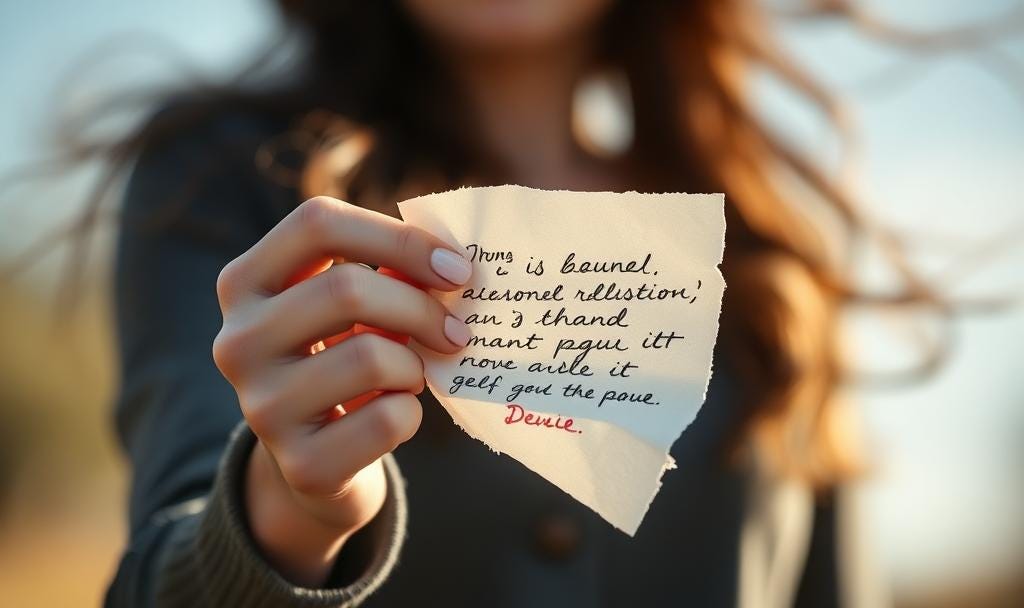 Thung is baunel.
alesonel rdllistion,'
an 3 thand
mant pgui itt
nove aicle it
gelf goul the paue.
Deucie.